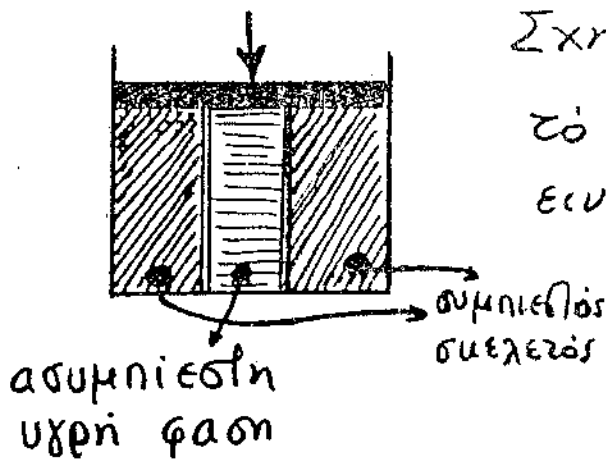 τό
συμπιεστός
σκελετός
ασυμπίεστη
υγρή φαση